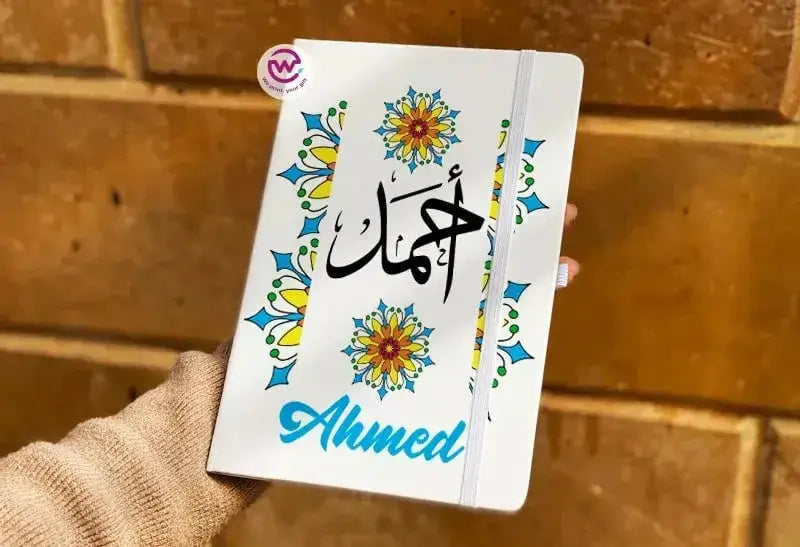 We print, your gift
أحمد
Ahmed